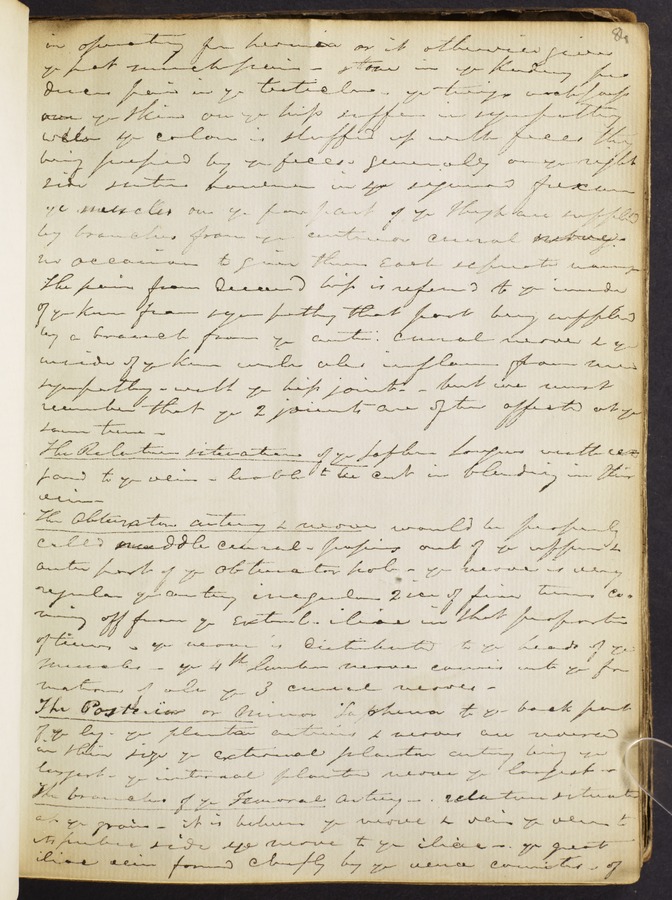 in operating for hernia or it otherwise gives
ye pat much pain - stone in ye Kidney pro
duces pain in ye testicles - ye
ye skin over ye hip suffers in sympathy
when ye colon is stuffed up with feces the
being pressed by ye feces generally on ye right
side however in ye sigmoid flexure
ye muscles on ye fore part of ye thigh are supplied
by branches from ye anterior crural nerve
no occasion to give them each separate names
The pain from diseased hip is referred to ye inside
of ye knee from sympathy that part being supplied
by a branch from ye anter: crural nerve & ye
inside of ye knee will also inflame from mere
sympathy - with ye hip joint - but we must
remember that ye 2 joints are often affected at ye
same time -
The Relative situation of ye Saphen longus with re=
gard to ye vein - liable to be cut in bleeding in this
vein -
The Obturator artery & nerve would be properly
called middle crural - passing out of ye upper &
outer part of ye obturator hole - ye nerve is very
regular ye artery irregular 2 ice of five times co=
ming off from ye External iliac in that proportion
of times - ye nerve is distributed to ye heads of ye
muscles - ye 4th lumbar nerve comes into ye for
mation of all ye 3 crural nerves -
The Posterior or minor Saphena to ye back part
of ye leg - ye plantar arteries & nerves are reversed
in their size ye external plantar artery being ye
largest - ye internal plantar nerve ye largest -
The branches of ye Femoral artery - relative situation
at ye groin - it is between ye nerve & vein ye vein to
its pubic side ye nerve to ye iliac - ye great
iliac vein formed chiefly by ye venae comites - of